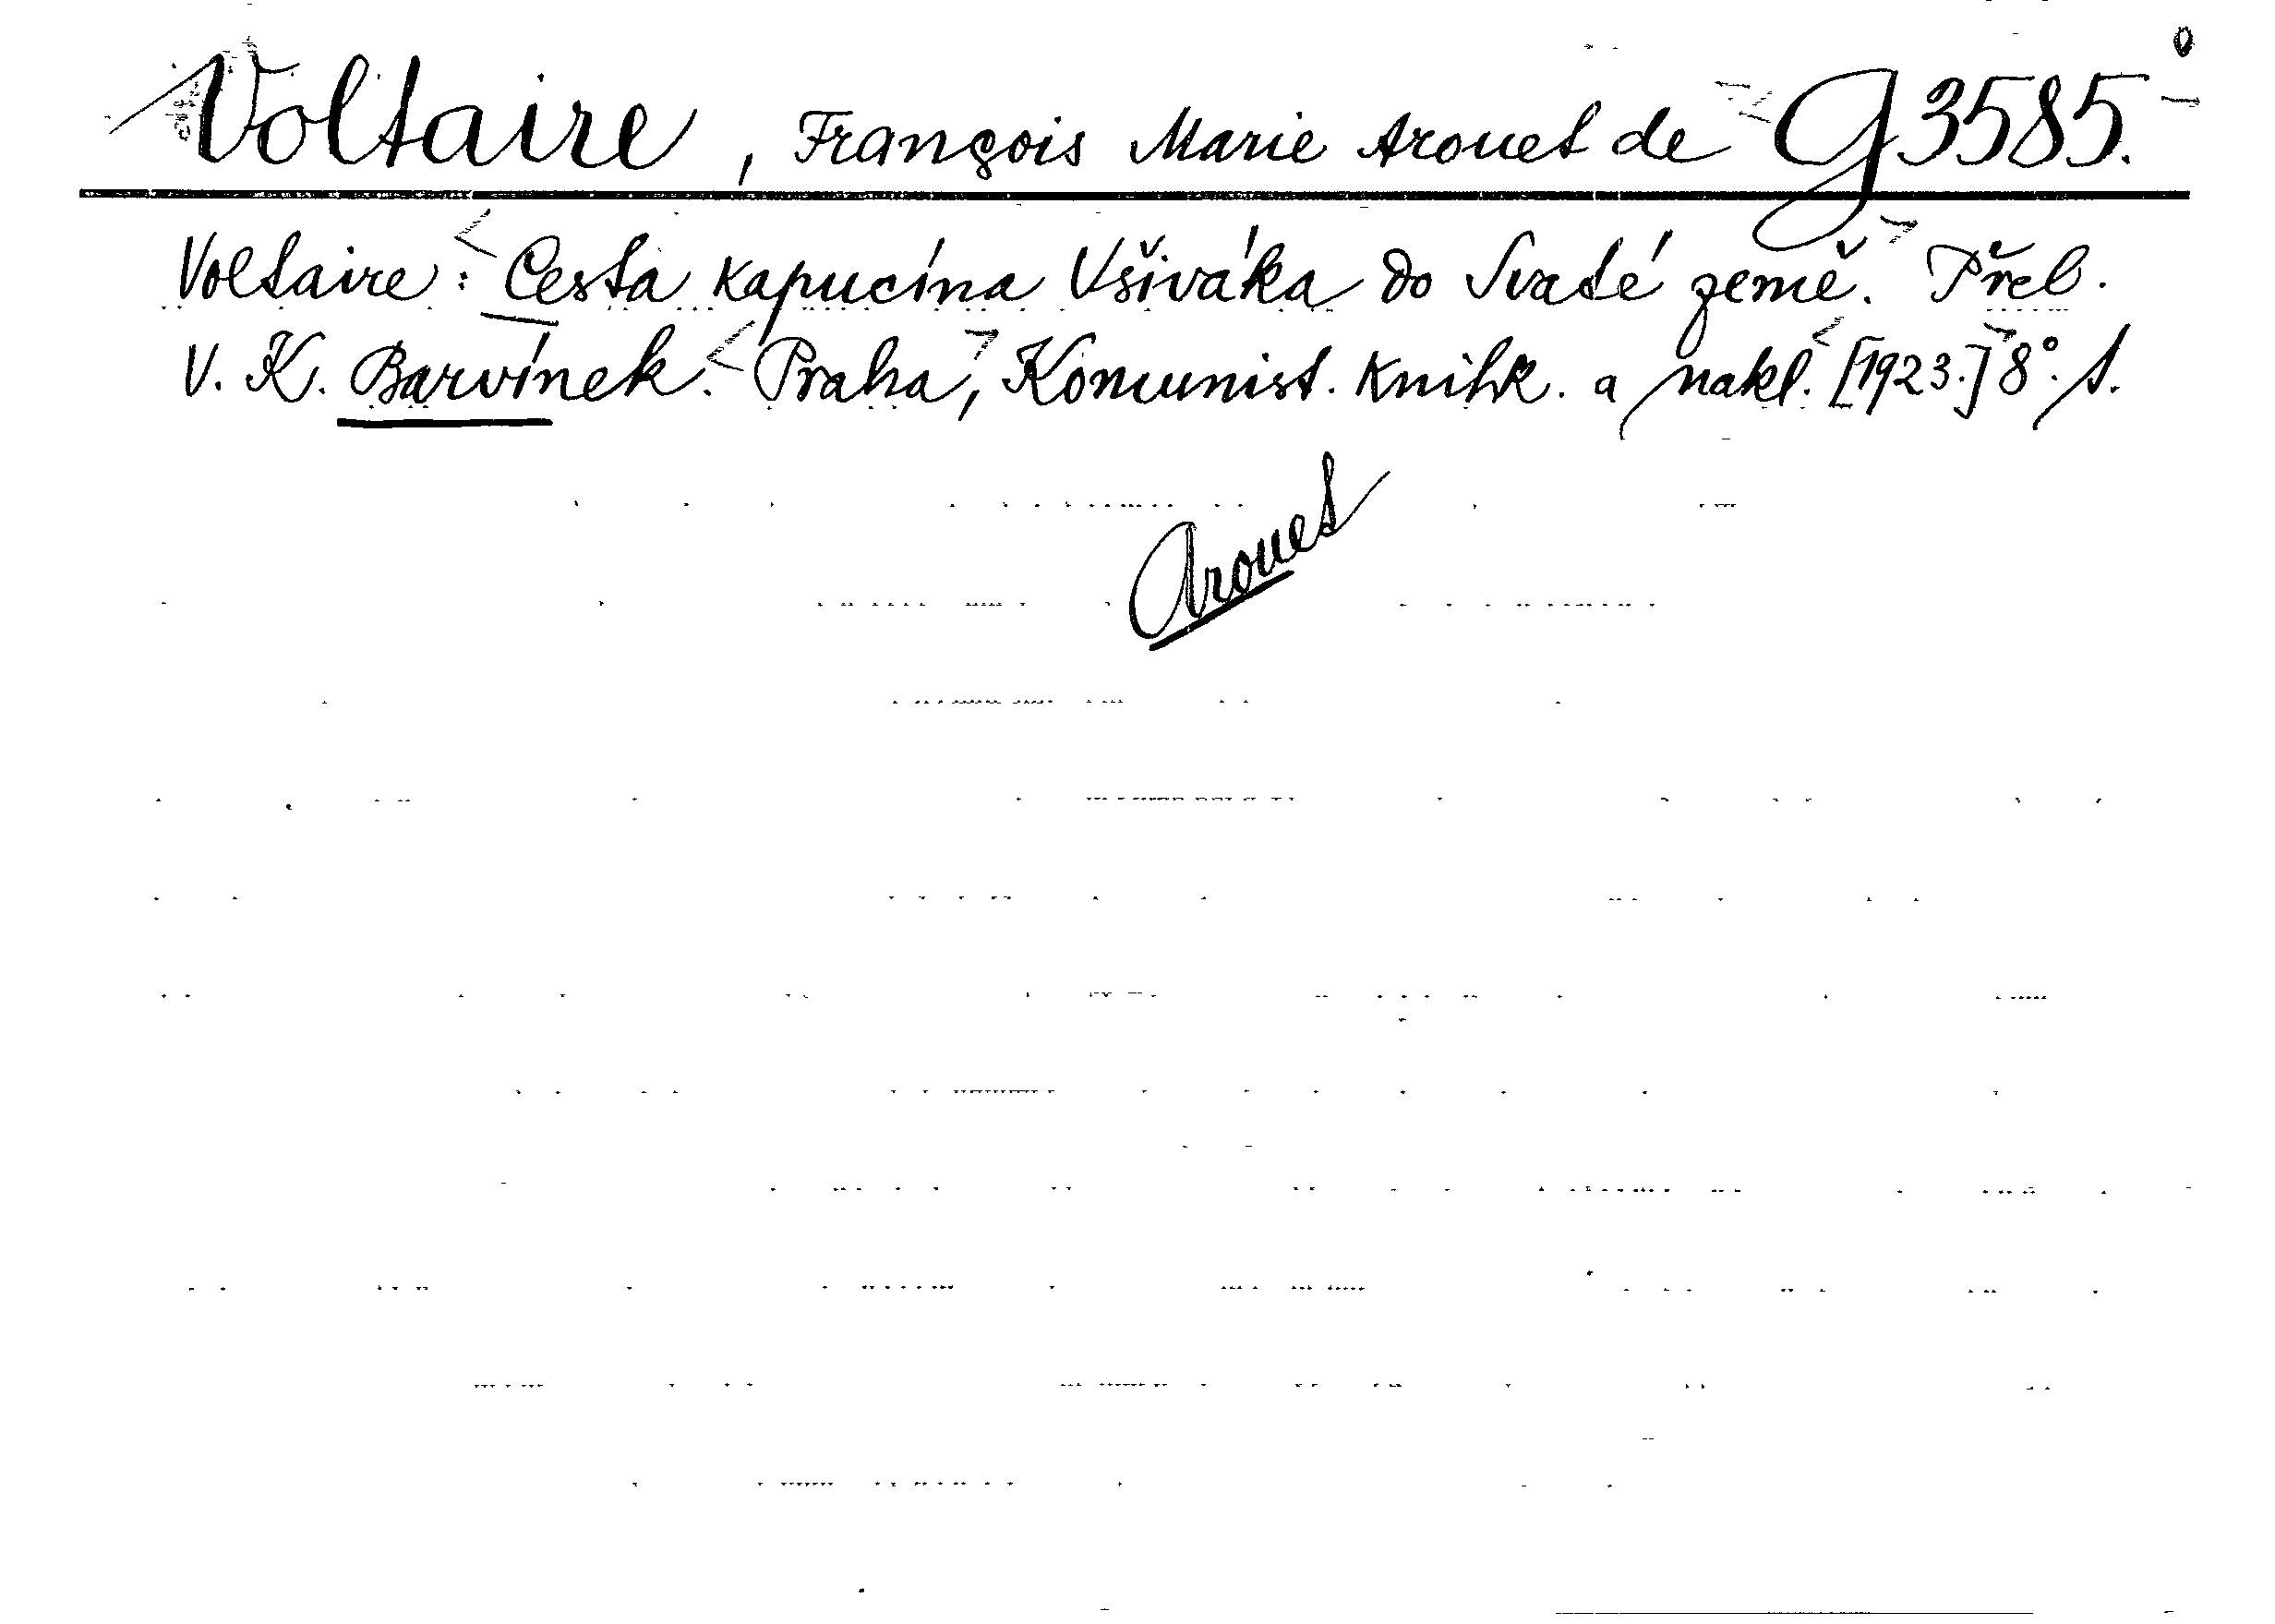 Voltaire, François Marie Arouet de G 3585.
Voltaire: Cesta kapucína Všiváka do Svaté země. Přel.
V. K. Barvínek. Praha, Komunist. knihk. a nakl. [1923.] 8°. s.
Arouet